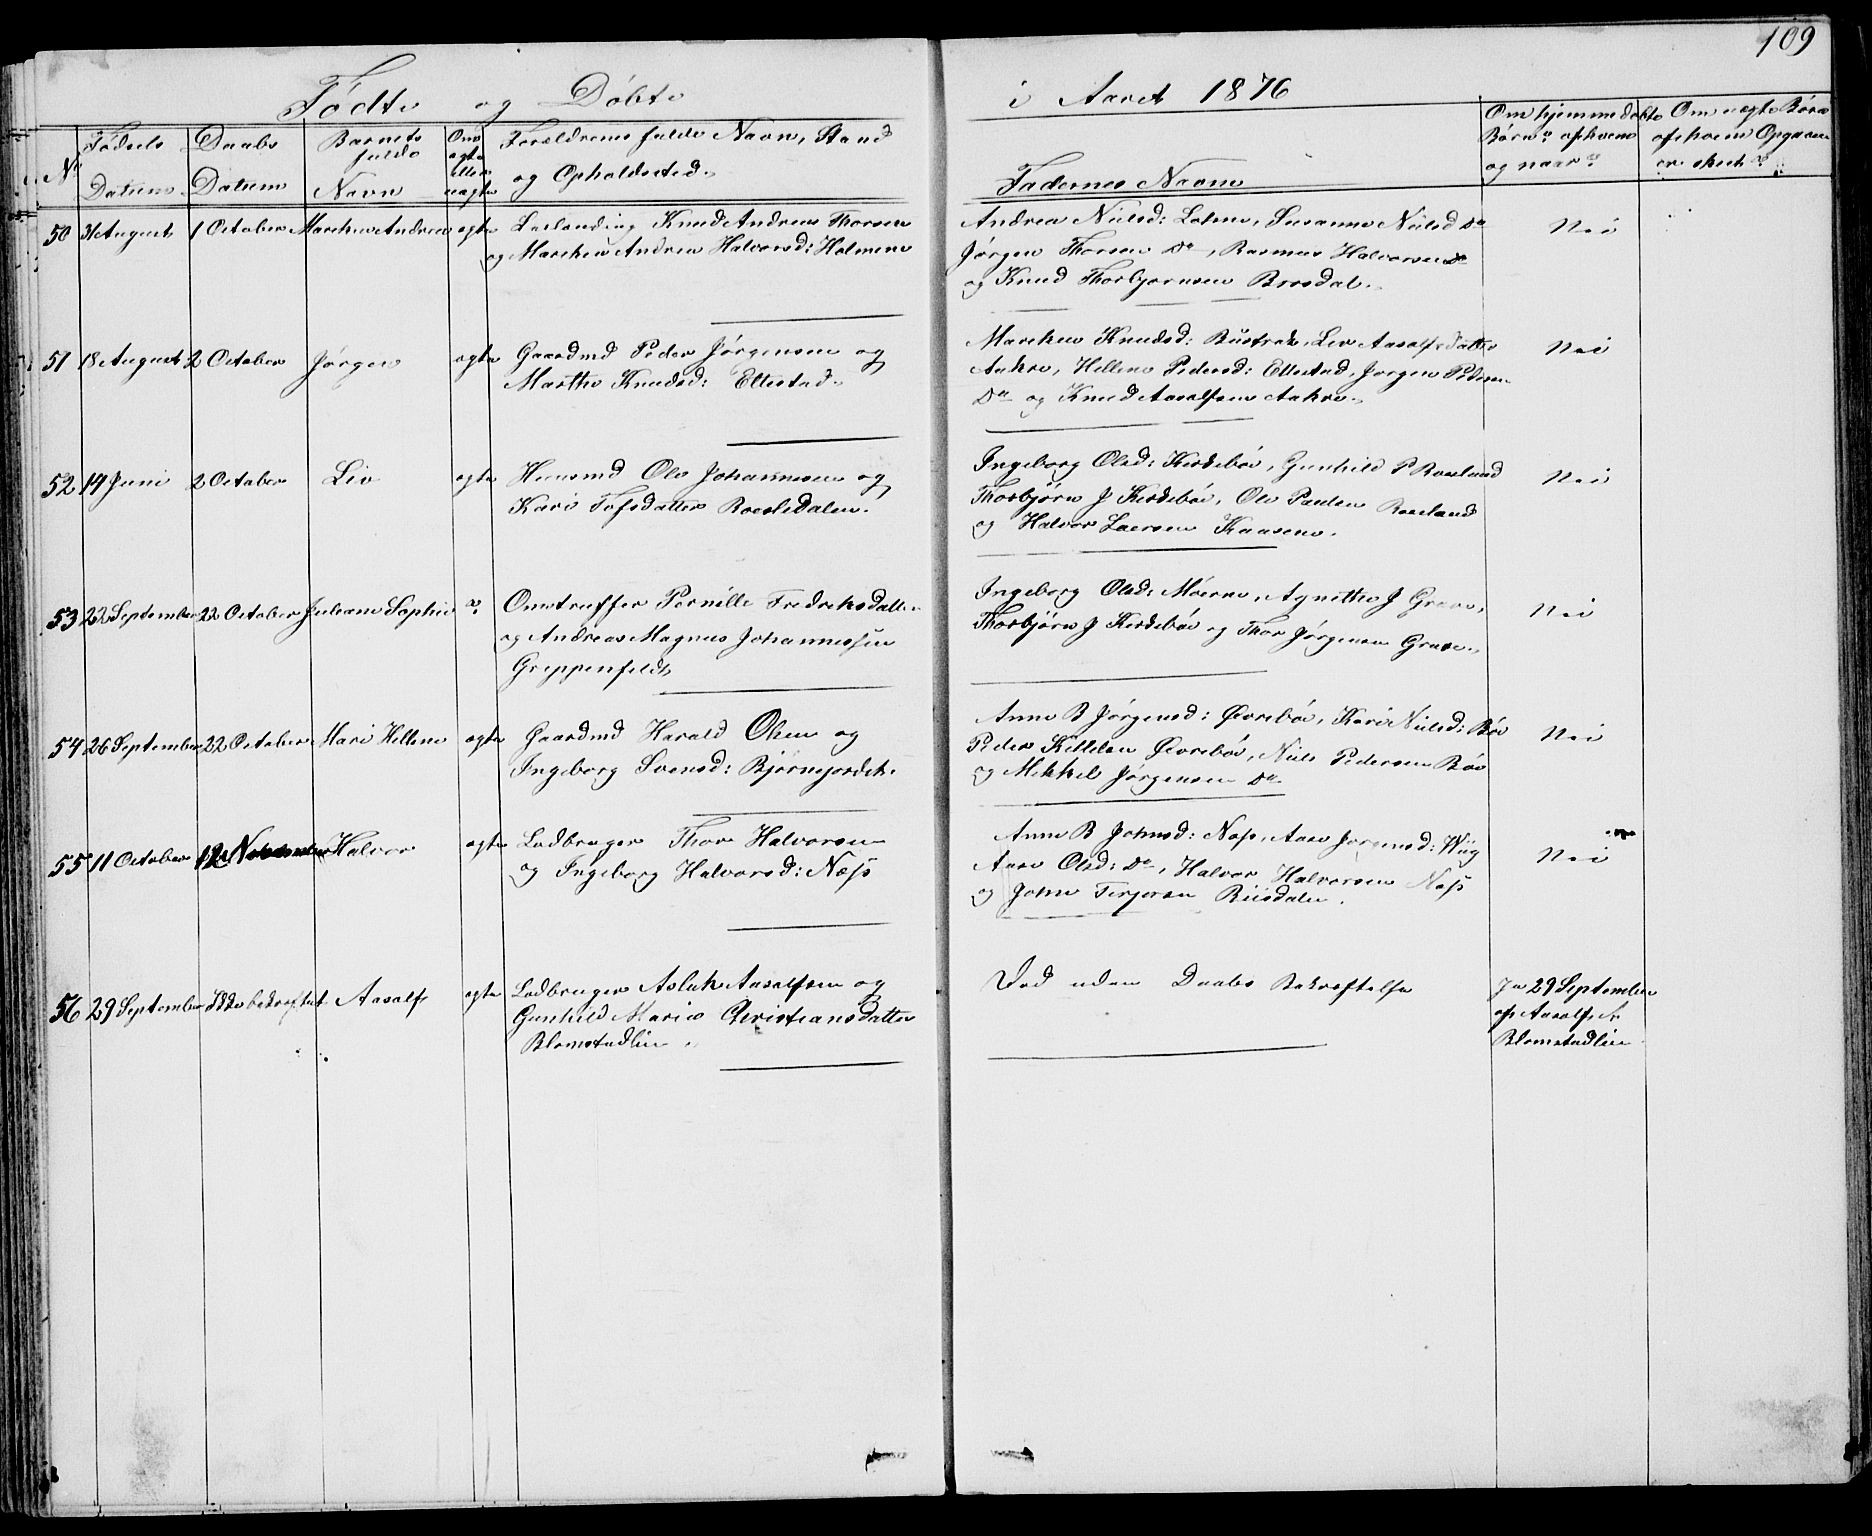 109
Födte og Döbte i Aaret 1876
No
Födsels Datum
Daabs Datum
Barnets fulde Navn
Om ægte eller uægte
Forældrenes fulde Navn, Stand og Opholdssted.
Faddernes Navne
Om hjemmedöbte Börn? af hvem og naar?
Om uægte Börn af hvem Opgaven er skeet?
50 31 August 1 October Marthea Andrea ægte
Knud Andreas Thorsen
og Marthea Andrea Halvorsd: Holmene
Andrea Nielsd: Susanne Nielsd Do
Jörgen Thorsen Do, Rasmus Halvorsen Do
og Knud Thorbjørnsen Brosdal.
Nei
51 18 August 2 October Jörgen ægte
Gaardmd Peder Jörgensen og
Marthe Knudsd: Ettestad.
Knudsd: Liv Aasolfsdatter
Aakre, Hellene Pedersd: Ettestad, Jörgen Pedersen
Do og Knud Aasolfsen Aakre.
Nei
52 14 Juni 2 October Liv ægte
Huusmd Ole Johannesen og
Kari Tofsdatter
Ingeborg Olsd: Kirkebøe, Gunhild P Roseland
Thorbjörn J Kirkebøe, Ole Paulsen Roseland
og Halvor Larsen Kaasene.
Nei
53 22 September 22 October Juliane Sophie
Omstreffer Pernille Fredreksdatter
og Andreas Magnus Johannessen
Greppenfeldt
Ingeborg Olsd: Moerne, Agnethe J Grave,
Thorbjörn J Kirkebøe og Thor Jörgensen Grave.
Nei
54 26 September 22 October Mari Hellene ægte
Gaardmd Harald Olsen og
Ingeborg Svensd: Bjørnejordet.
Anne B Jörgensd: Øvrebøe, Kari Nielsd: Bøe
Peder Kittelsen Øvrebøe, Niels Pedersen Bøe
og Mikkel Jörgensen Do
Nei
55 11 October 12 November Halvor ægte
Ledbruger Thor Halvorsen
og Ingeborg Halvorsd: Næss
Anne B Johnsd: Næss, Aase Jörgensd: Wiig
Aase Olsd: Do, Halvor Halvorsen Næss
og John Terjesen Riisdalen.
Nei
56 29 September Ikke bekræftet Aasolf ægte
Ledbruger Aslak Aasolfsen og
Gunhild Marie Christiansdatter
Blomstadlien.
Död uden Daabs Bekræftelse
Ja 29 September
af Aasolf A
Blomstadlien.